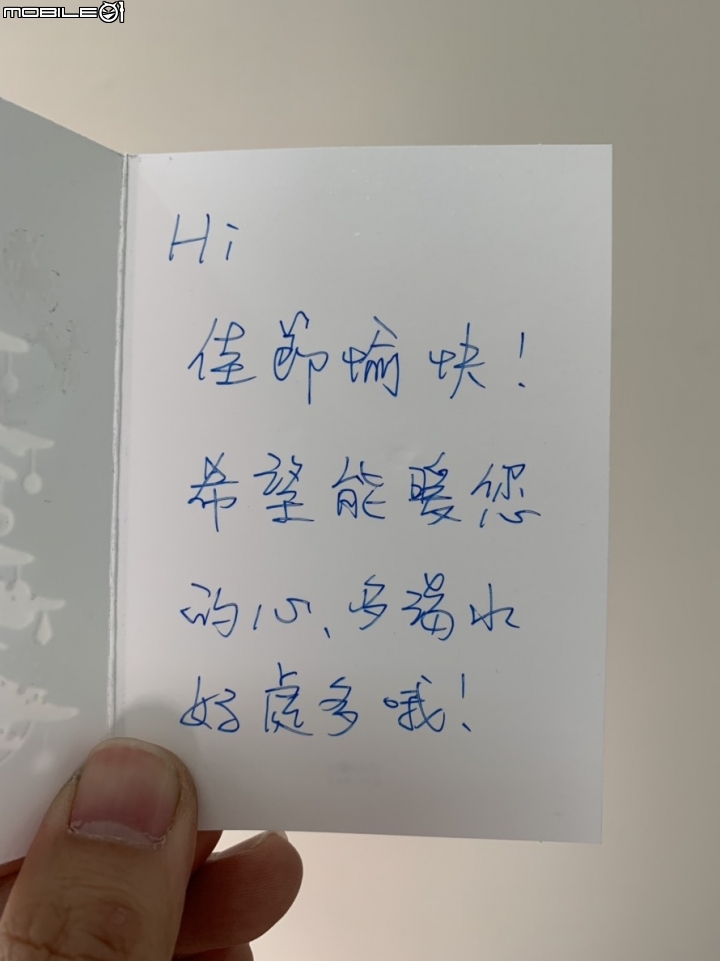 MOBILE01
Hi
佳節愉快！
希望能暖您
的心、多喝水
好處多哦！